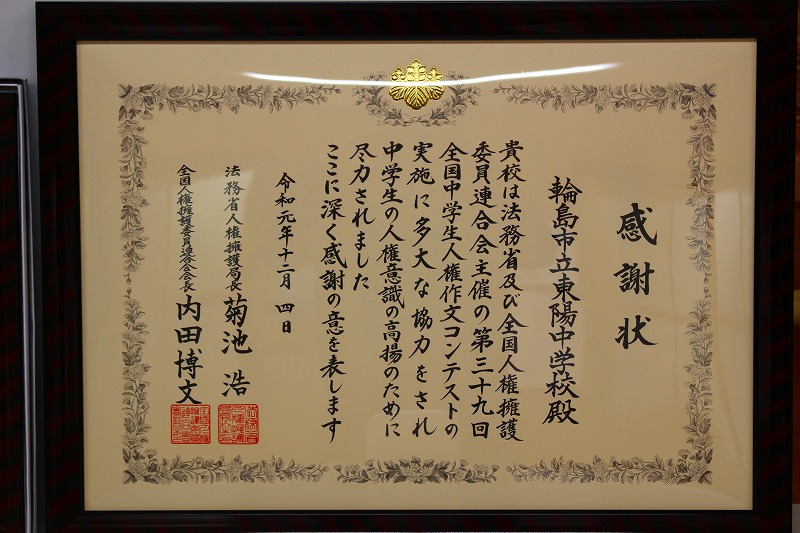 感謝状
輪島市立東陽中学校殿
貴校は法務省及び全国人権擁護
委員連合会主催の第三十九回
全国中学生人権作文コンテストの
実施に多大な協力をされ
中学生の人権意識の高揚のために
尽力されました
ここに深く感謝の意を表します
令和元年十二月四日
法務省人権擁護局長 菊池浩
全国人権擁護委員連合会会長 内田博文